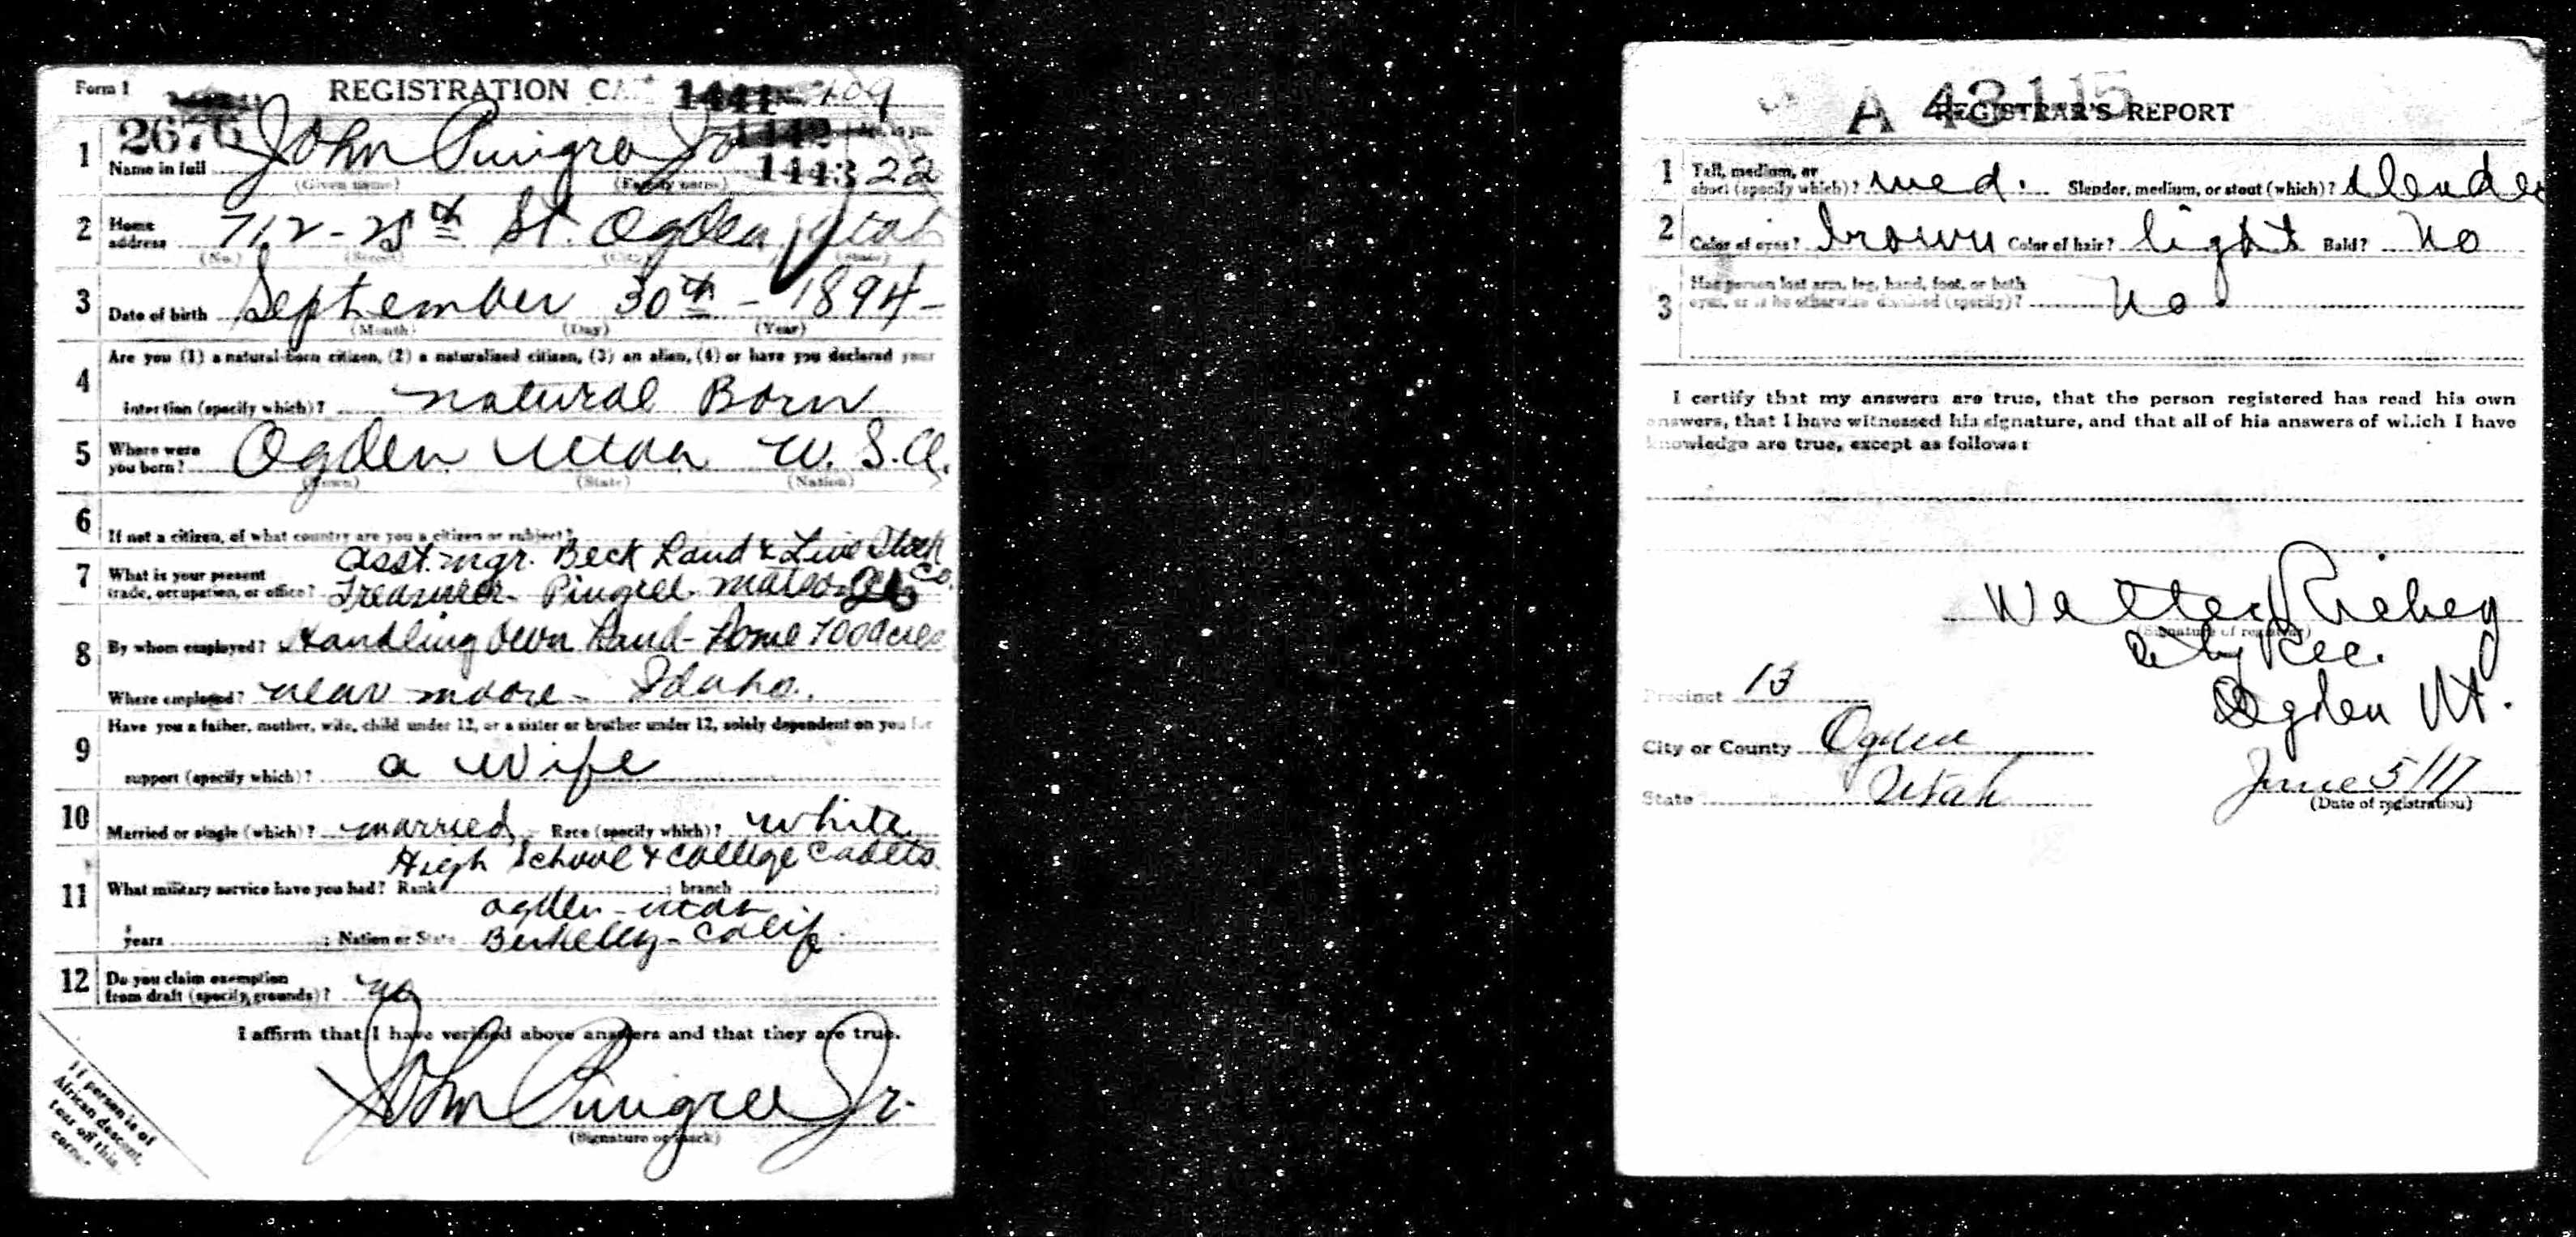 Form 1
REGISTRATION CA 1441 No. 409
2676
1 Name in full John Pingree Jr
1442
1443 22
(Given name) (Family name)
2 Home address 712 - 25th St. Ogden, Utah
(No.) (Street) (City) (State)
3 Date of birth September 30th - 1894 -
(Month) (Day) (Year)
Are you (1) a natural-born citizen, (2) a naturalized citizen, (3) an alien, (4) or have you declared your
4 intention (specify which)? natural Born
5 Where were you born? Ogden Utah U. S. A.
(Town) (State) (Nation)
6 If not a citizen, of what country are you a citizen or subject?
Asst. mgr. Beck Land & Live Stock Co.
7 What is your present trade, occupation, or office? Treasurer - Pingree 26
8 By whom employed? Handling Own Land - Some 700 acres
Where employed? near moore - Idaho.
Have you a father, mother, wife, child under 12, or a sister or brother under 12, solely dependent on you for
9 support (specify which)? a wife
10 Married or single (which)? married Race (specify which)? white
High School & College Cadets
11 What military service have you had? Rank ; branch ;
Ogden - Utah
years ; Nation or State Berkeley - Calif.
12 Do you claim exemption from draft (specify grounds)? no
I affirm that I have verified above answers and that they are true.
John Pingree Jr.
(Signature or mark)
If person is of
African descent,
tear off this
corner
A 43115
REGISTRAR'S REPORT
1 Tall, medium, or short (specify which)? med. Slender, medium, or stout (which)? slender
2 Color of eyes? brown Color of hair? light Bald? No
3 Has person lost arm, leg, hand, foot, or both eyes, or is he otherwise disabled (specify)? No.
I certify that my answers are true, that the person registered has read his own
answers, that I have witnessed his signature, and that all of his answers of which I have
knowledge are true, except as follows:
Walter Richey
(Signature of registrar)
Dty Rec.
Ogden Ut.
Precinct 13
City or County Ogden
State Utah
June 5/17
(Date of registration)